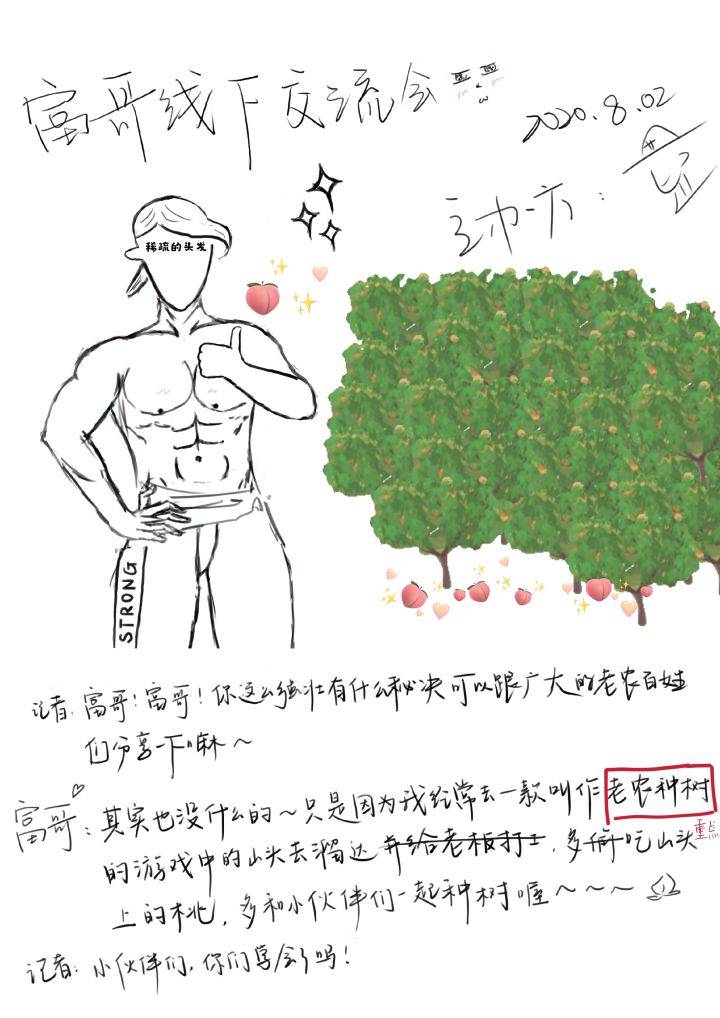 富哥线下交流会
2020.8.02
主办方:
稀疏的头发
STRONG
记者:富哥!富哥!你这么强壮有什么秘决可以跟广大的老农百姓
们分享一下嘛~
富哥:其实也没什么的~只是因为我经常去一款叫作老农种树
的游戏中的山头去溜达并给老板打工,多病吃山头
重点
上的桃,多和小伙伴们一起种树喔~~~
记者:小伙伴们,你们学会了吗!